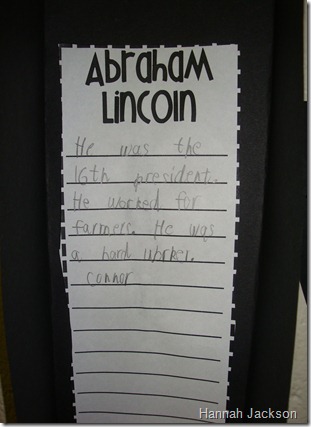 Abraham
Lincoln
He was the
16th president.
He worked for
farmers. He was
a hard worker.
connor
Hannah Jackson